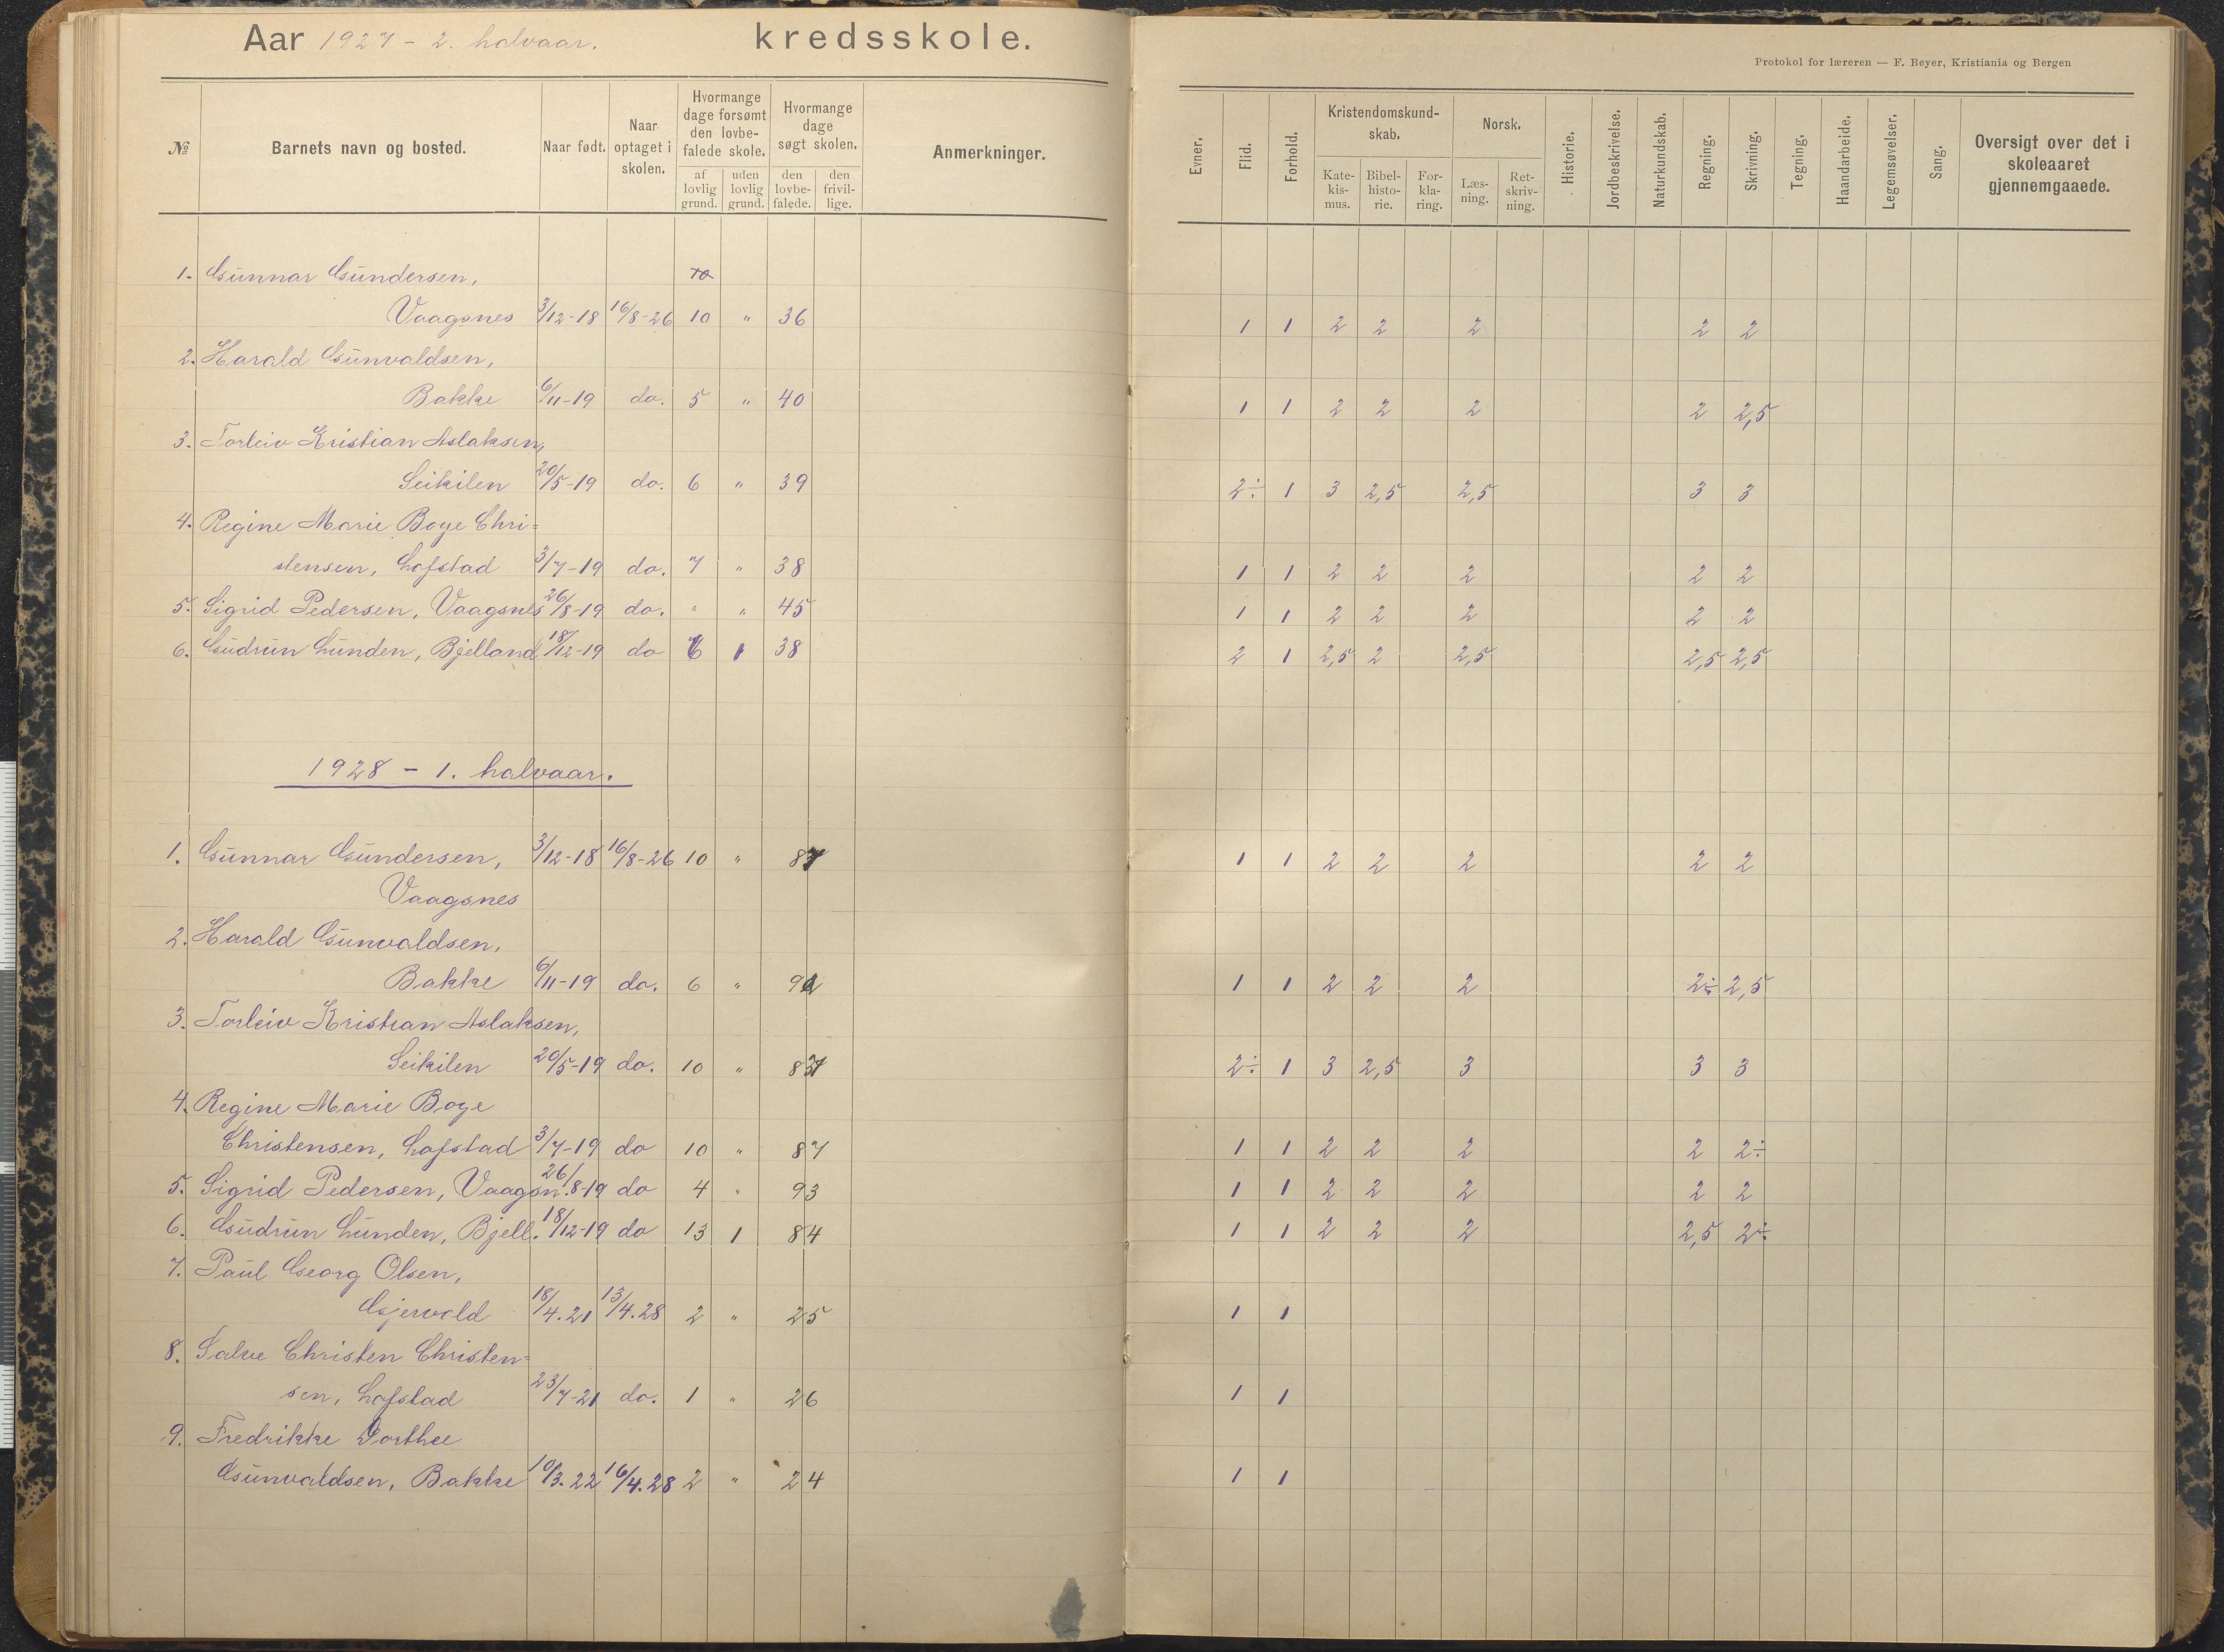 Aar 1927 - 2. halvaar. kredsskole.
Protokol for læreren — F. Beyer, Kristiania og Bergen
№ Barnets navn og bosted. Naar født. Naar optaget i skolen. Hvormange dage forsømt den lovbefalede skole. af lovlig grund. uden lovlig grund. Hvormange dage søgt skolen. den lovbefalede. den frivillige. Anmerkninger.
Evner. Flid. Forhold. Kristendomskundskab. Katekismus. Bibelhistorie. Forklaring. Norsk. Læsning. Retskrivning. Historie. Jordbeskrivelse. Naturkundskab. Regning. Skrivning. Tegning. Haandarbeide. Legemsøvelser. Sang. Oversigt over det i skoleaaret gjennemgaaede.
1. Gunnar Gundersen, 10
Vaagsnes 3/12-18 16/8-26 10 " 36 1 1 2 2 2 2 2
2. Harald Gunvaldsen,
Bakke 6/11-19 do. 5 " 40 1 1 2 2 2 2 2,5
3. Torleiv Kristian Aslaksen,
Leikilen 20/5-19 do. 6 " 39 2÷ 1 3 2,5 2,5 3 3
4. Regine Marie Boye Chri=
stensen, Lofstad 3/7-19 do. 7 " 38 1 1 2 2 2 2 2
5. Sigrid Pedersen, Vaagsnes 26/8-19 do. " " 45 1 1 2 2 2 2 2
6. Gudrun Lunden, Bjelland 18/12-19 do 6 1 38 2 1 2,5 2 2,5 2,5 2,5
1928 - 1. halvaar.
1. Gunnar Gundersen, 3/12-18 16/8-26 10 " 87 1 1 2 2 2 2 2
Vaagsnes
2. Harald Gunvaldsen,
Bakke 6/11-19 do. 6 " 1 1 2 2 2 2÷ 2,5
3. Torleiv Kristian Aslaksen,
Leikilen 20/5-19 do. 10 " 87 2÷ 1 3 2,5 3 3 3
4. Regine Marie Boye
Christensen, Lofstad 3/7-19 do 10 " 87 1 1 2 2 2 2 2÷
5. Sigrid Pedersen, Vaagsn. 26/8-19 do 4 " 93 1 1 2 2 2 2 2
6. Gudrun Lunden, Bjell. 18/12-19 do 13 1 84 1 1 2 2 2 2,5 2÷
7. Paul Georg Olsen,
Gjervold 18/4.21 13/4.28 2 " 25 1 1
8. Salve Christen Christen=
sen, Lofstad 23/7-21 do. 1 " 26 1 1
9. Fredrikke Dorthee
Gunvaldsen, Bakke 10/3.22 16/4.28 2 " 24 1 1